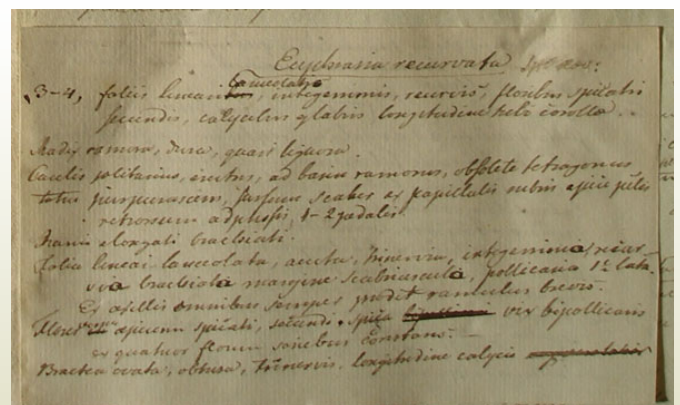 Euphrasia recurvata Sp. nov.
3-4, foliis lineari lanceolatis, integerrimis, recurvis, floribus spicatis
secundis, calycibus glabris longitudine corollae.
Radix ramosa, dura, quasi lignosa.
Caulis solitarius, erectus, ad basin ramosus, obsolete tetragonus
totus purpurascens, sursum scaber ex papillulis rubris apice pilis
retrorsum adpressis, 1-2 pedalis.
Ramis elongati brachiati.
Folia lineari lanceolata, acuta, trinervia, integerrima, recur-
va brachiata margine scabriuscula, pollicaria 1''' lata.
Ex axillis omnibus semper prodit ramulus brevis.
Flores apicem spicati, secundi. spica vix bipollicaris
ex quatuor florum seriebus constans.
Bractea ovata, obtusa, trinervis, longitudine calycis